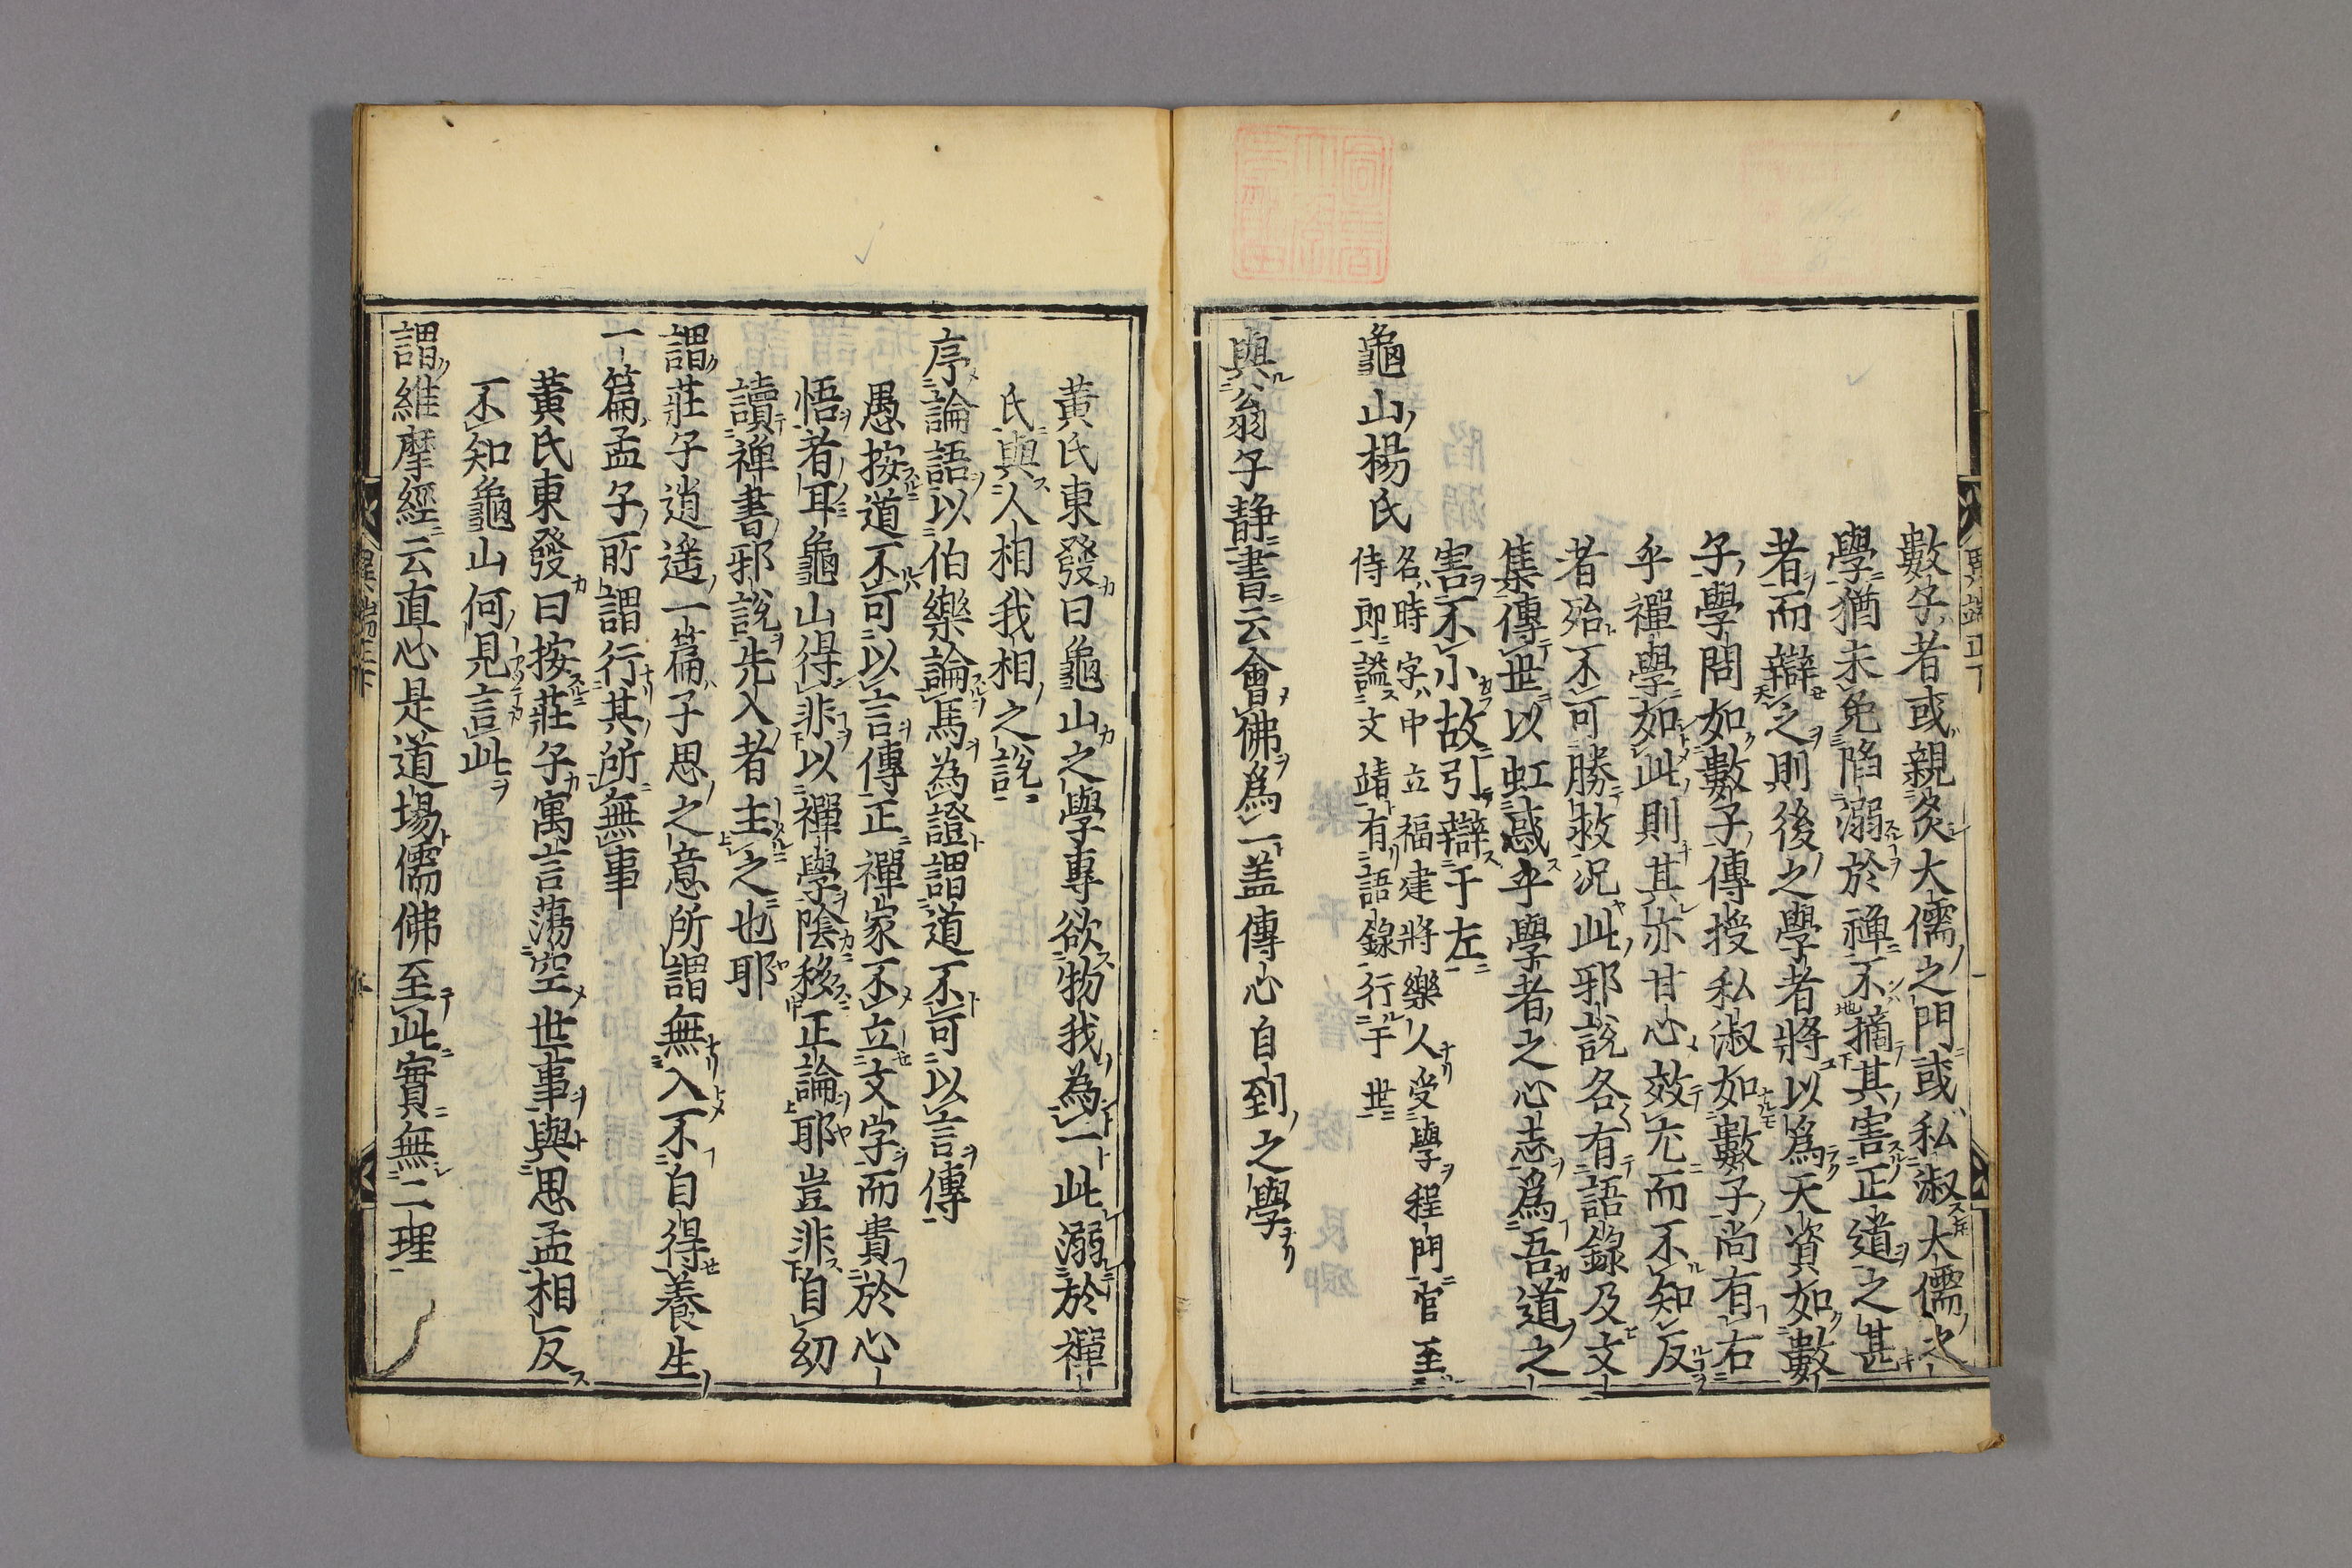 數子者或親炙大儒之門或私淑大儒之
學猶未免陷溺於禅不摘其害正道之甚
者而辯之則後之學者將以爲天資如數
子學問如數子傳授私淑如數子尚有右
乎禪學如此則其亦甘心效尤而不知反
者殆不可勝救况此邪說各有語錄及文
集傳世以虹惑乎學者之心志爲吾道之
害不小故引辯于左
龜山楊氏
名時字中立福建將樂人受學程門官至
侍郎謚文靖有語錄行于世
與翁子静書云會佛爲一盖傳心自到之學
黃氏東發曰龜山之學專欲物我為一此溺於禪
氏與人相我相之說
序論語以伯樂論馬為證謂道不可以言傳
愚按道不可以言傳正禪家不立文字而貴於心
悟者耳龜山得非以禪學陰移正論耶豈非自幼
讀禅書邪說先入者主之也耶
謂莊子逍遙一篇子思之意所謂無入不自得養生
一篇孟子所謂行其所無事
黃氏東發曰按莊子寓言蕩空世事與思孟相反
不知龜山何見言此
謂維摩經云直心是道場儒佛至此實無二理